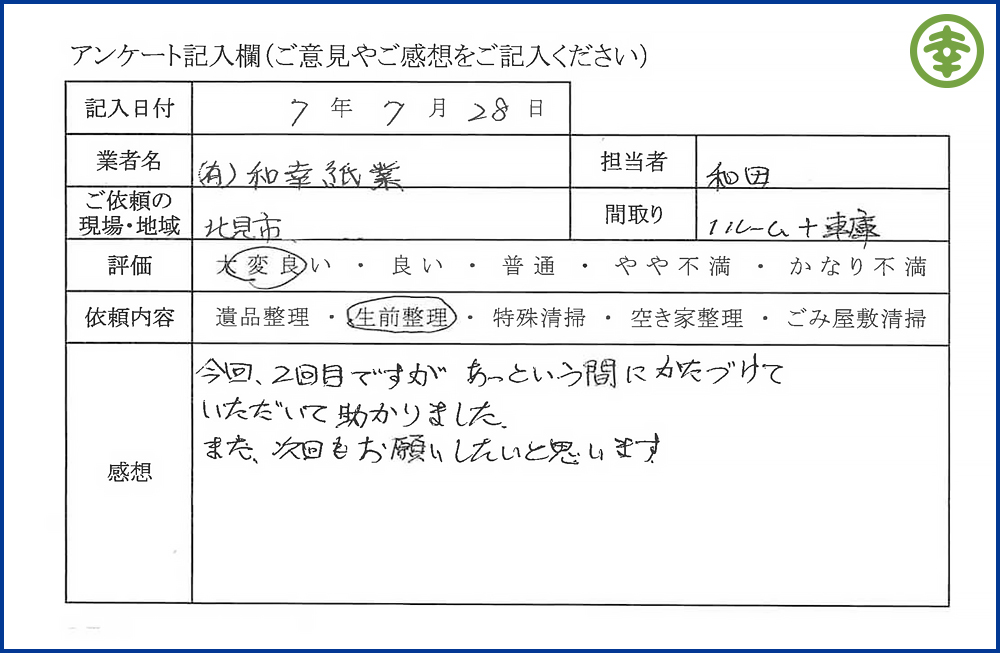 幸
アンケート記入欄(ご意見やご感想をご記入ください)
記入日付 7年7月28日
業者名 (有)和幸紙業 担当者 和田
ご依頼の
現場・地域 北見市 間取り 1ルーム+車庫
評価 大変良い ・ 良い ・ 普通 ・ やや不満 ・ かなり不満
依頼内容 遺品整理 ・ 生前整理 ・ 特殊清掃 ・ 空き家整理 ・ ごみ屋敷清掃
感想
今回、2回目ですが あっという間にかたづけて
いただいて助かりました。
また、次回もお願いしたいと思います